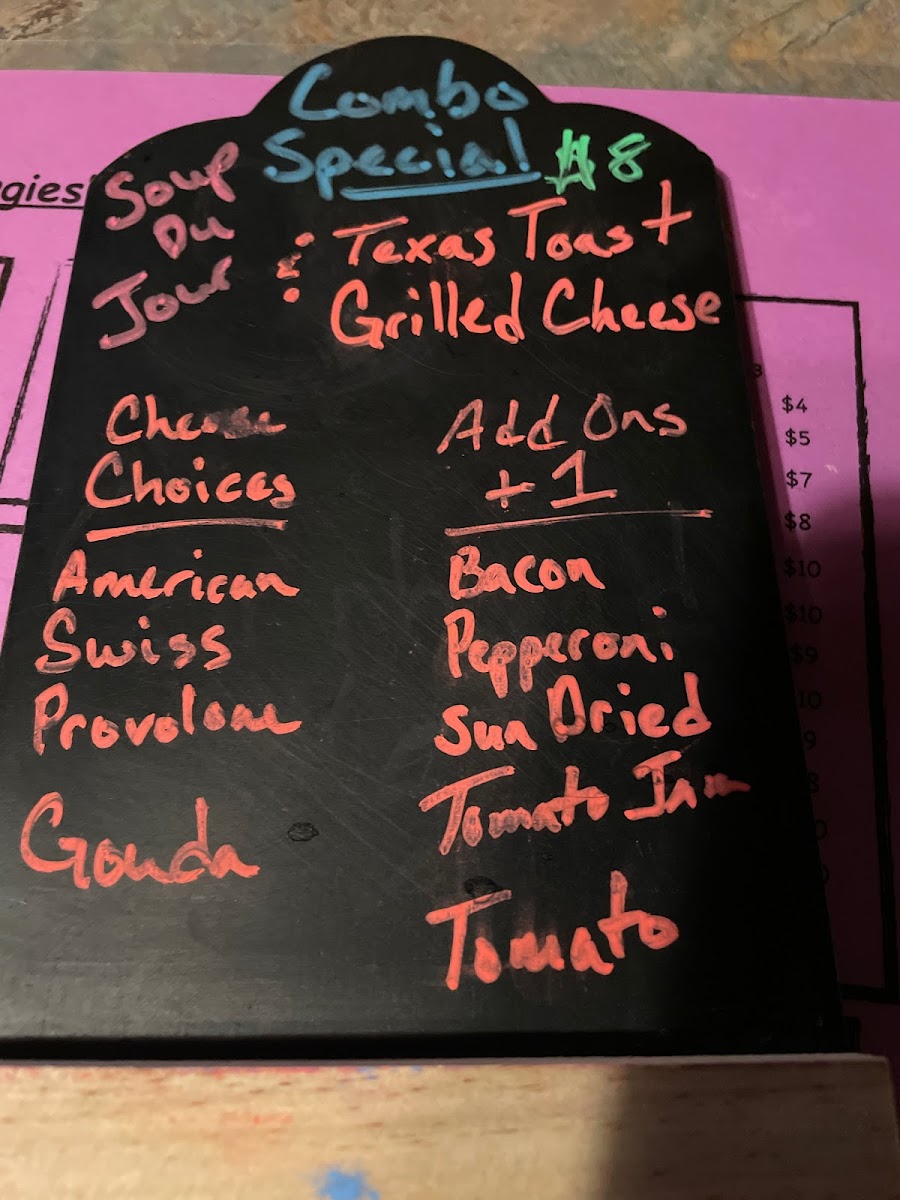 Combo
Special $8
Soup
Du
Jour
& Texas Toast
Grilled Cheese
Cheese
Choices
American
Swiss
Provolone
Gouda
Add Ons
+ 1
Bacon
Pepperoni
Sun Dried
Tomato Jam
Tomato
gies
$4
$5
$7
$8
$10
$10
$9
10
9